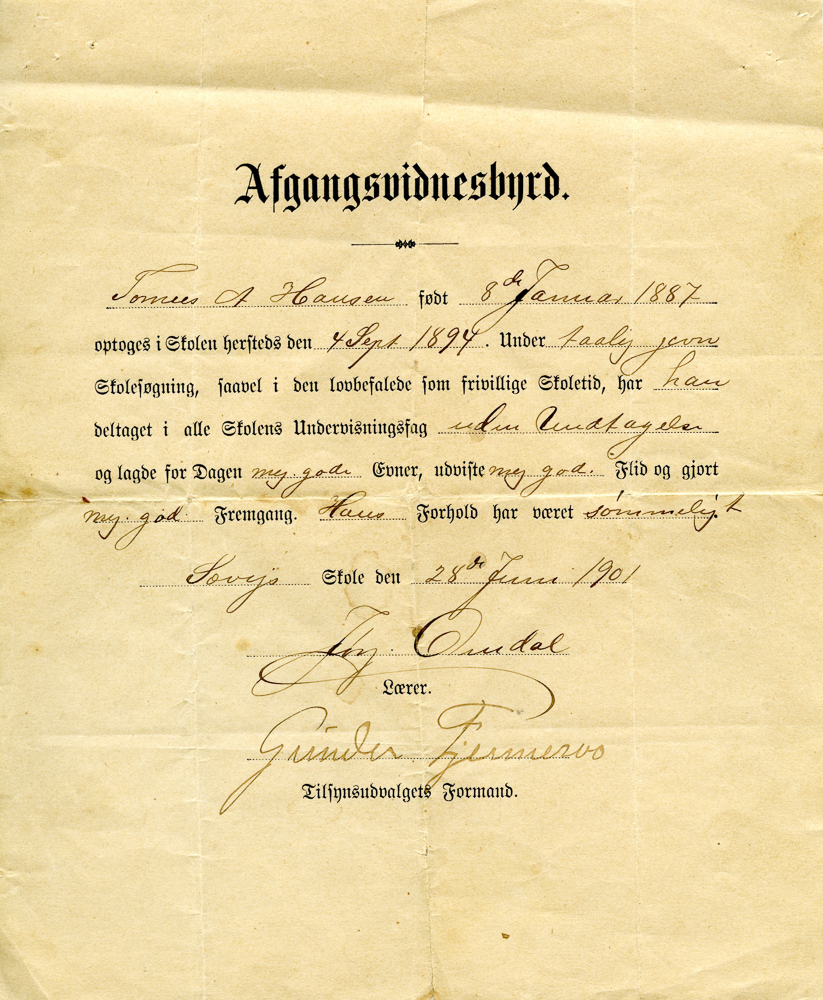 Afgangsvidnesbyrd.
Tomees A Hansen født 8de Januar 1887
optoges i Skolen hersteds den 4 Sept 1894. Under taalig jevn
Skolesøgning, saavel i den lovbefalede som frivillige Skoletid, har han
deltaget i alle Skolens Undervisningsfag uden Undtagelse
og lagde for Dagen meg. gode Evner, udviste meg god. Flid og gjort
meg. god Fremgang. Hans Forhold har været sømmeligt
Skole den 28de Juni 1901
Omdal
Lærer.
Gunder Fjermeros
Tilsynsudvalgets Formand.